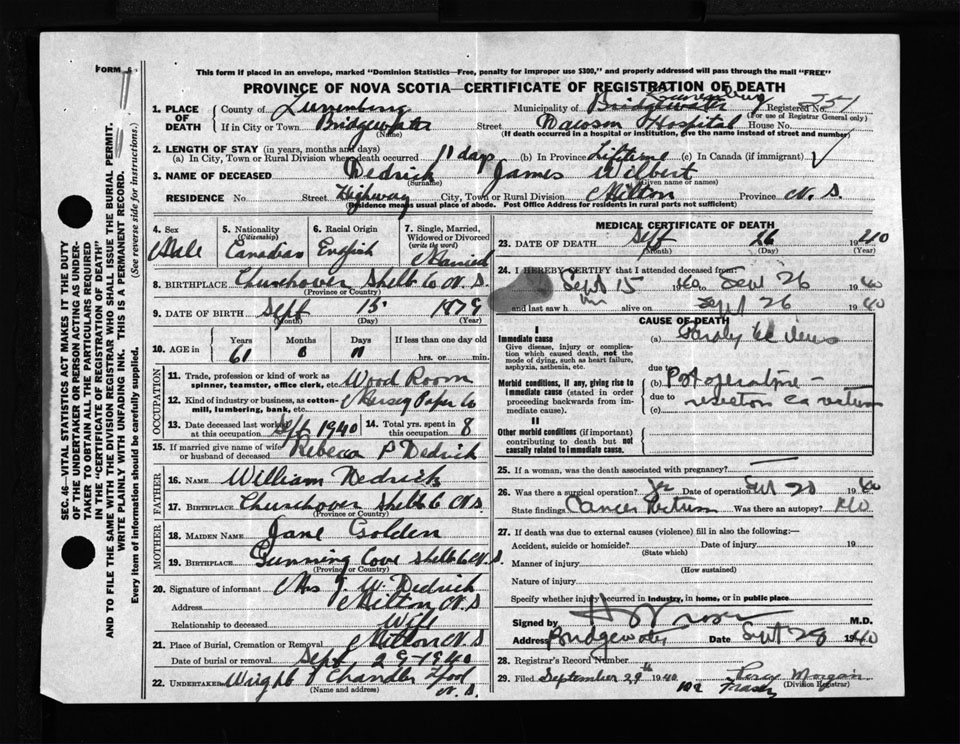 FORM 6
This form if placed in an envelope, marked "Dominion Statistics—Free, penalty for improper use $300," and properly addressed will pass through the mail "FREE"
PROVINCE OF NOVA SCOTIA—CERTIFICATE OF REGISTRATION OF DEATH
1. PLACE OF DEATH County of Lunenburg Municipality of Lunenburg Bridgewater Registered No. 251
(For use of Registrar General only)
If in City or Town Bridgewater Street Dawson Hospital House No.
(Name) (If death occurred in a hospital or institution, give the name instead of street and number)
2. LENGTH OF STAY (in years, months and days)
(a) In City, Town or Rural Division where death occurred 11 days (b) In Province Lifetime (c) In Canada (if immigrant)
3. NAME OF DECEASED Dedrick James Wilbert
(Surname) (Given name or names)
RESIDENCE No. Street Highway City, Town or Rural Division Milton Province N.S.
(Residence means usual place of abode. Post Office Address for residents in rural parts not sufficient)
4. Sex Male
5. Nationality (Citizenship) Canadian
6. Racial Origin English
7. Single, Married, Widowed or Divorced (write the word) Married
8. BIRTHPLACE Churchover Shelb Co N.S.
(Province or Country)
9. DATE OF BIRTH Sept 15 1879
(Month) (Day) (Year)
10. AGE in Years 61 Months 0 Days 11 If less than one day old
hrs. or min.
OCCUPATION
11. Trade, profession or kind of work as spinner, teamster, office clerk, etc. Wood Room
12. Kind of industry or business, as cotton-mill, lumbering, bank, etc. Mersey Paper Co
13. Date deceased last worked at this occupation Sept 1940
14. Total yrs. spent in this occupation 8
15. If married give name of wife or husband of deceased Rebecca P Dedrick
FATHER
16. NAME William Dedrick
17. BIRTHPLACE Churchover Shelb Co N.S
(Province or Country)
MOTHER
18. MAIDEN NAME Jane Golden
19. BIRTHPLACE Gunning Cove Shelb Co N.S.
(Province or Country)
20. Signature of informant Mrs J. W. Dedrick
Address Milton N.S
Relationship to deceased Wife
21. Place of Burial, Cremation or Removal Milton N.S
Date of burial or removal Sept 29-1940
22. UNDERTAKER Wright Chandler Lpool N.S.
(Name and address)
MEDICAL CERTIFICATE OF DEATH
23. DATE OF DEATH Sept 26 1940
(Month) (Day) (Year)
24. I HEREBY CERTIFY that I attended deceased from:
Sept 15 1940 to Sept 26 1940
and last saw him alive on Sept 26 1940
CAUSE OF DEATH
I
Immediate cause
Give disease, injury or complication which caused death, not the mode of dying, such as heart failure, asphyxia, asthenia, etc.
(a)
due to
Morbid conditions, if any, giving rise to immediate cause (stated in order proceeding backwards from immediate cause).
(b) Post operative -
due to
(c)
II
Other morbid conditions (if important) contributing to death but not causally related to immediate cause.
25. If a woman, was the death associated with pregnancy?
26. Was there a surgical operation? yes Date of operation Sept 20 1940
State findings Cancer Rectum Was there an autopsy? No
27. If death was due to external causes (violence) fill in also the following:—
Accident, suicide or homicide? Date of injury 19
(State which)
Manner of injury
(How sustained)
Nature of injury
Specify whether injury occurred in industry, in home, or in public place
Signed by M.D.
Address Bridgewater Date Sept 28 1940
28. Registrar's Record Number
29. Filed September 29th 1940 Percy Morgan
(Division Registrar)
per Fraser
SEC. 46—VITAL STATISTICS ACT MAKES IT THE DUTY
OF THE UNDERTAKER OR PERSON ACTING AS UNDERTAKER
TO OBTAIN ALL THE PARTICULARS REQUIRED
IN THE "CERTIFICATE OF REGISTRATION OF DEATH"
AND TO FILE THE SAME WITH THE DIVISION REGISTRAR WHO SHALL ISSUE THE BURIAL PERMIT.
WRITE PLAINLY WITH UNFADING INK. THIS IS A PERMANENT RECORD.
Every item of information should be carefully supplied. (See reverse side for instructions.)